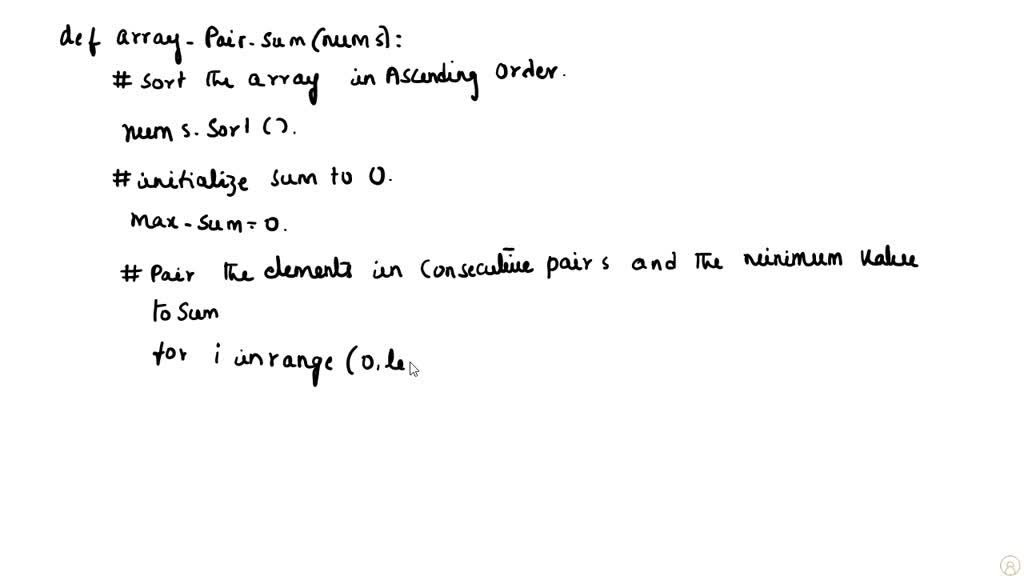 def array-Pair-sum(nums):
# sort the array in Ascending Order.
nums.Sort().
# initialize sum to 0.
max-sum=0.
# Pair the elements in Consecutive pairs and the minimum value
to Sum
for i inrange (0,le